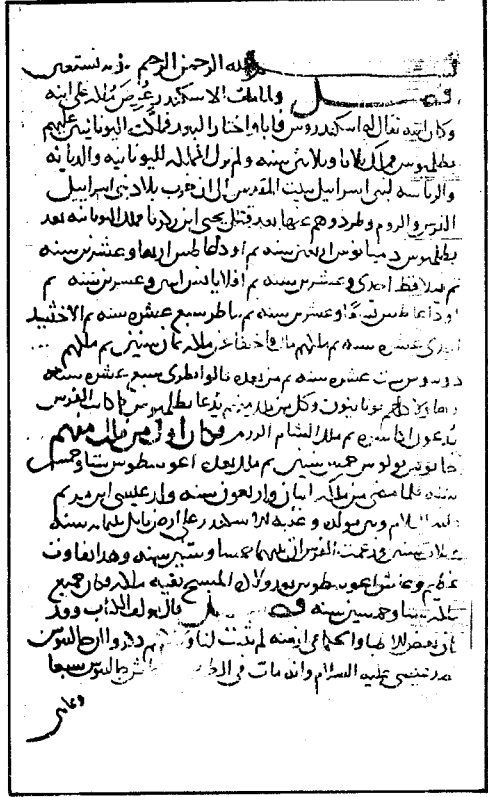 بسم الله الرحمن الرحيم وبه نستعين
فصل ولما مات الاسكندر عرض الملك على ابنه
وكان ابنه يقال له اسكندروس فابا واختار التعبد فملكت اليونانيين عليهم
بطلميوس فملك ثمانيا وثلاثين سنه ولم تزل المملكه لليونانيه والديانه
والرياسه لبني اسرايل ببيت المقدس الى ان خرب بلاد بني اسراييل
الفرس والروم وطردوهم عنها بعد قتل يحيى ابن زكريا ملك اليونانيه بعد
بطلميوس دميانوس اربعين سنه ثم اوداعاطس اربعا وعشرين سنه
ثم احدى وعشرين سنه ثم اثنين وعشرين سنه ثم
اوداعاطس تسعا وعشرين سنه ثم ساطر سبع عشره سنه ثم الاخشيد
احدى عشره سنه ثم ملكهم ملك فاختفا عن ملكه ثمان سنين ثم ملكهم
دونوس ست عشره سنه ثم من بعده قالوا بطرى سبع عشره سنه
يونانيون وكل من ملك منهم يدعا بطلميوس كما كانت الفرس
يدعون اكاسره ثم ملك الشام الروم فكان اول من ملك منهم
جانوس يولوس خمس سنين ثم ملك بعده اغوسطوس ستا وخمسين
سنه فلما مضى من ملكه اثنان واربعون سنه ولد عيسى ابن مريم
عليه السلام وبين مولده وغلبه الاسكندر على ارض بابل ثلثمايه سنه
وثلاث سنين وزعمت الفرس ان ثلثمايه خمسا وستين سنه وهذا تفاوت
عظيم وعاش اغوسطوس بعد ولاد المسيح بقيه ملكه فكان جميع
ملكه ستا وخمسين سنه فصل قال مولف الكتاب وقد
كان بعض الاطبا والحكماء ازمنه لم تثبت لنا دكروا ان جالينوس
بعد عيسى عليه السلام وانه مات في جالينوس سبعا
وثمانين